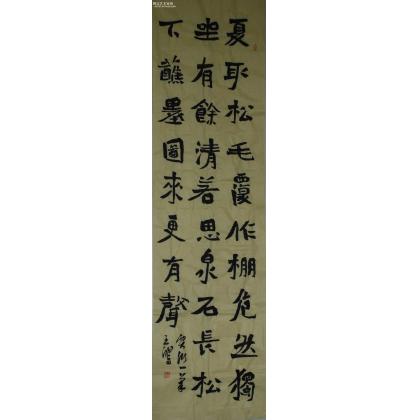 夏取松毛覆作棚危然獨
坐有餘清若思泉石長松
下醮墨圖來更有聲